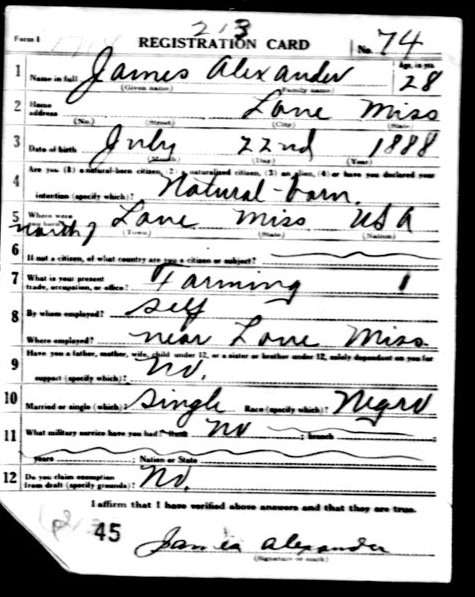 213
Form 1 REGISTRATION CARD No. 74
1 Name in full James Alexander Age, in yrs. 28
(Given name) (Family name)
2 Home address Lone Miss
(No.) (Street) (City) (State)
3 Date of birth July 22nd 1888
(Month) (Day) (Year)
Are you (1) a natural-born citizen, (2) a naturalized citizen, (3) an alien, (4) or have you declared your
4 intention (specify which)? Natural-born.
5 Where were you born? Lone Miss USA
north of (Town) (State) (Nation)
6 If not a citizen, of what country are you a citizen or subject?
7 What is your present trade, occupation, or office? Farming 1
8 By whom employed? self
Where employed? near Lone Miss.
9 Have you a father, mother, wife, child under 12, or a sister or brother under 12, solely dependent on you for
support (specify which)? No.
10 Married or single (which)? Single Race (specify which)? Negro
11 What military service have you had? Rank No ; branch ;
years ; Nation or State
12 Do you claim exemption from draft (specify grounds)? No.
I affirm that I have verified above answers and that they are true.
45
James Alexander
(Signature or mark)